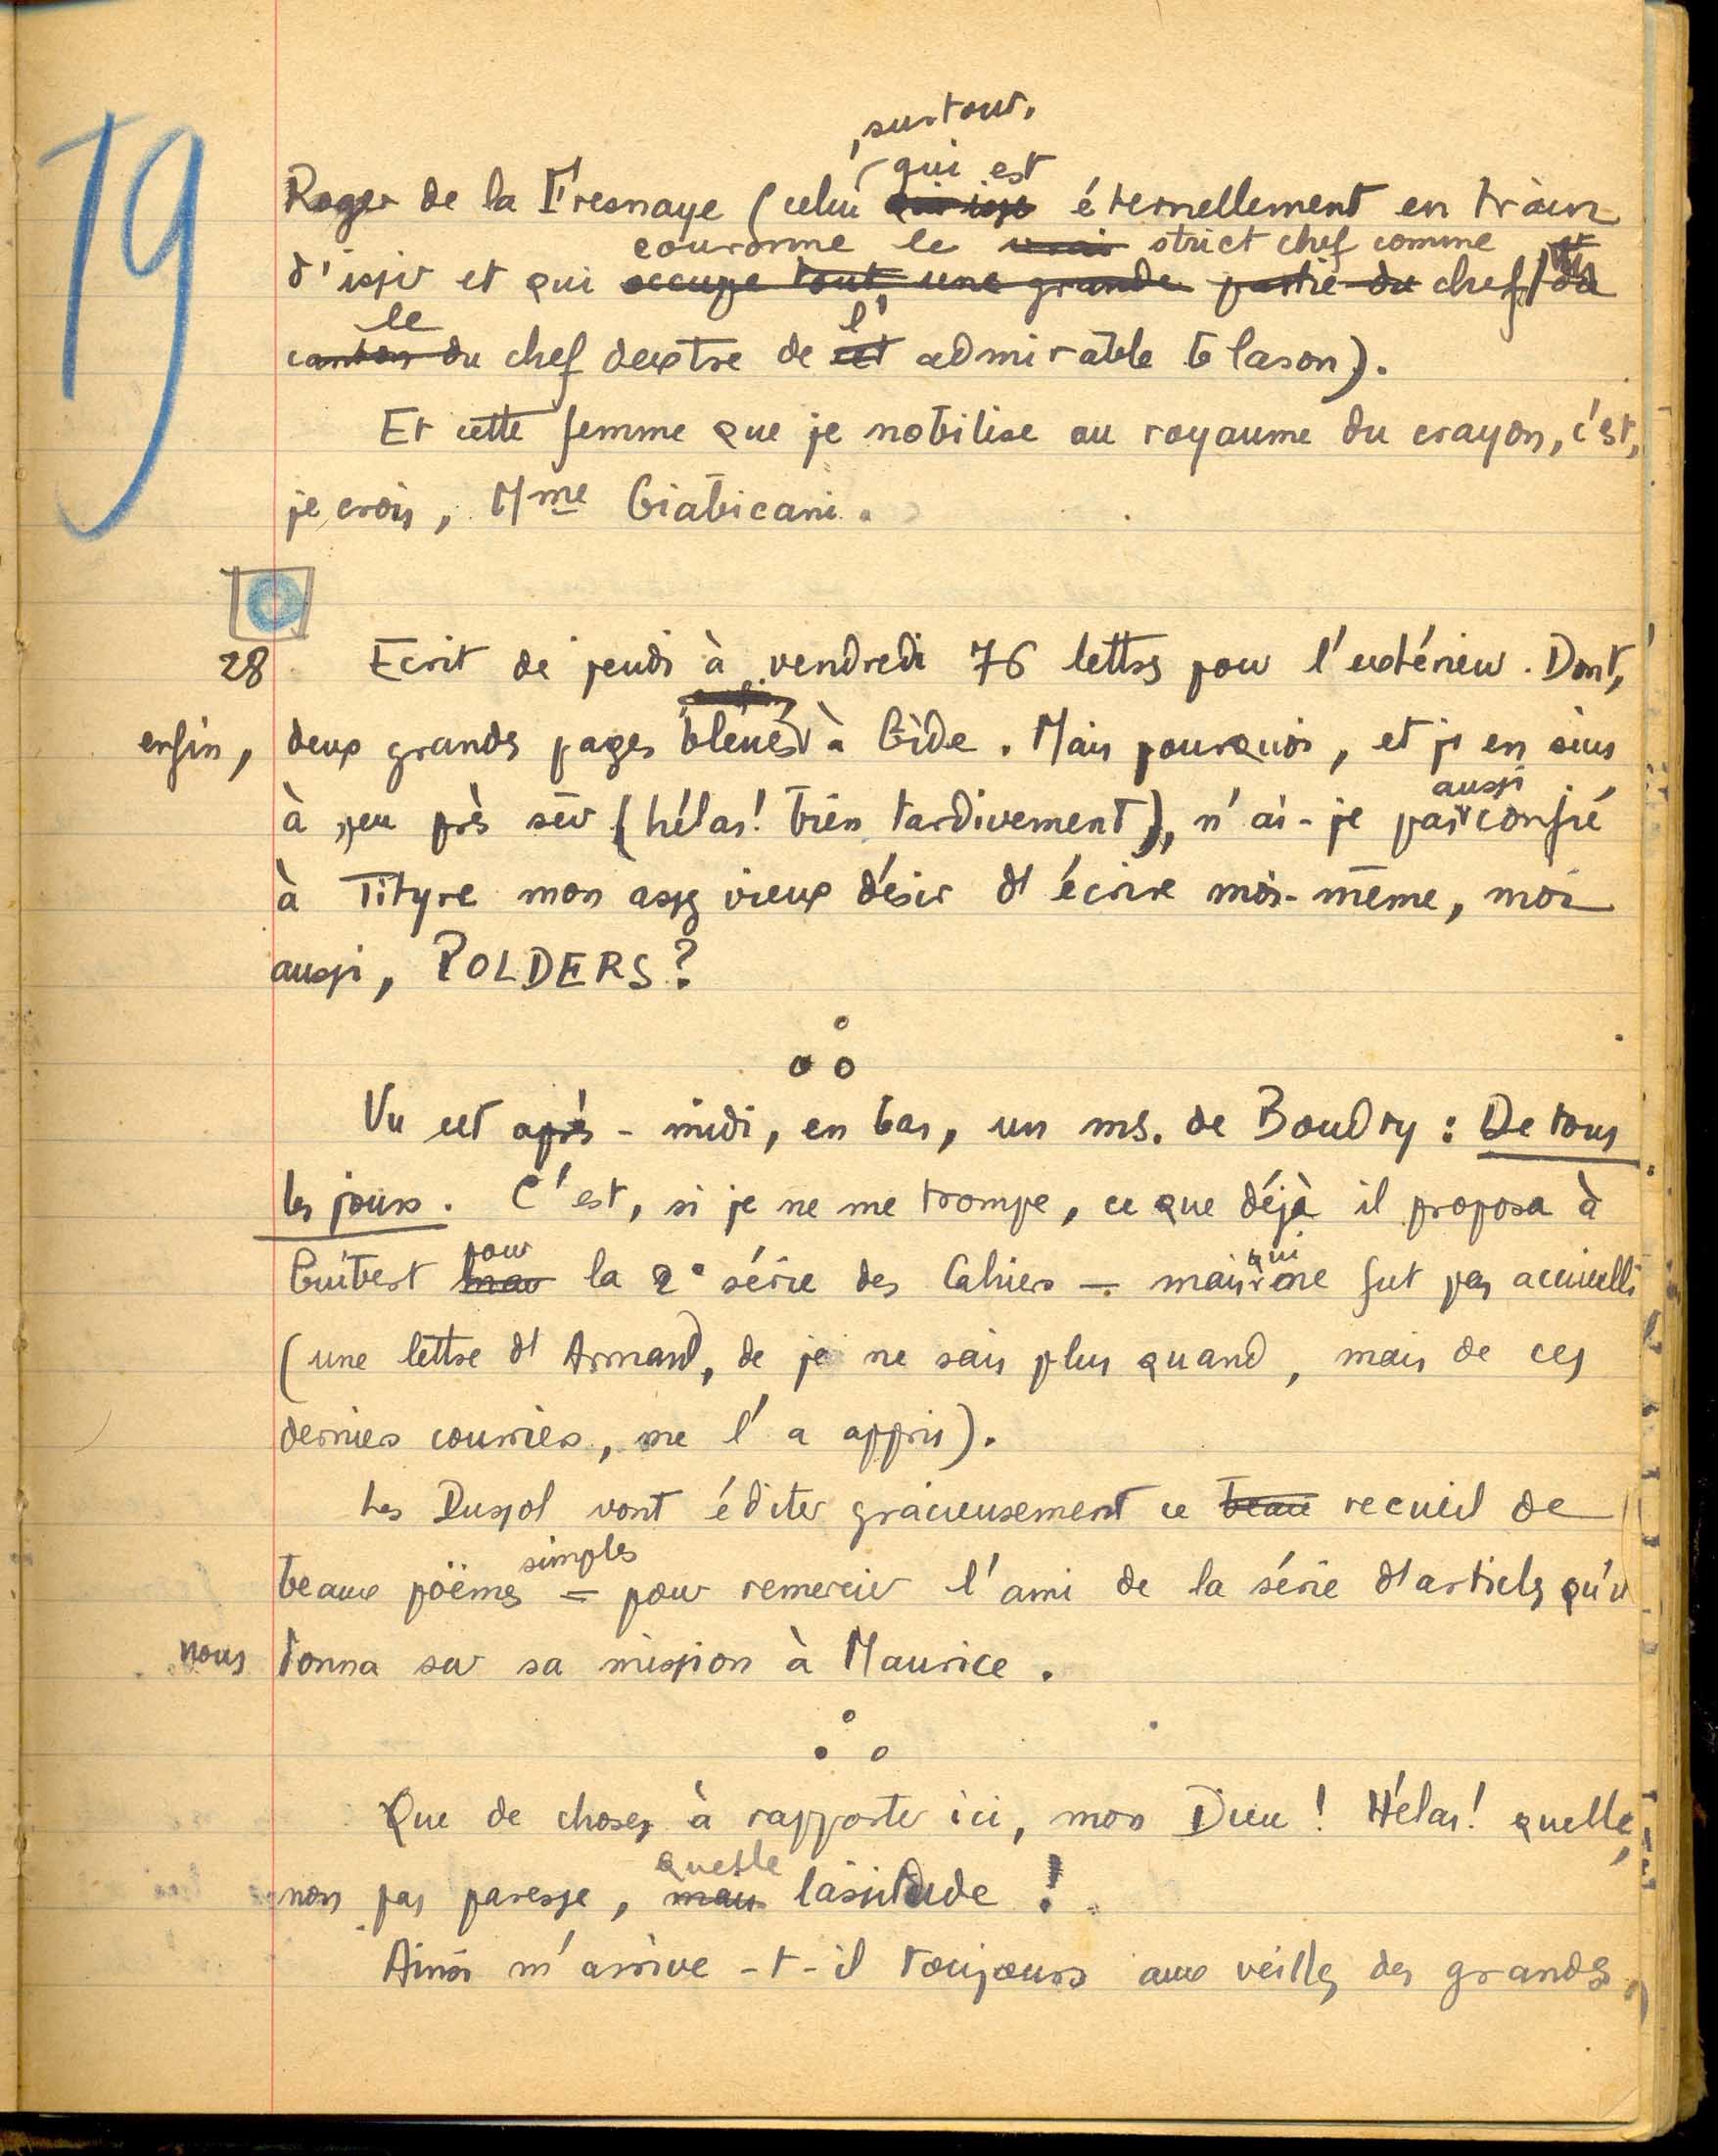 19
, surtout,
qui est
Roger de la Fresnaye (celui qui isse éternellement en train
couronne le vrai strict chef comme
d'issir et qui occupe tout une grande partie du chef / du
le l'
canton du chef dextre de cet admirable blason).
Et cette femme que je nobilise au royaume du crayon, c'est,
je crois, Mme Giabicani.
28 Ecrit de jeudi à vendredi 76 lettres pour l'extérieur. Dont,
enfin, deux grandes pages bleues à Gide. Mais pourquoi, et j'en suis
aussi
à peu près sûr (hélas! bien tardivement), n'ai-je pas confié
à Tityre mon assez vieux désir d'écrire moi-même, moi
aussi, POLDERS?
Vu cet après-midi, en bas, un ms. de Boudry : De tous
les jours. C'est, si je ne me trompe, ce que déjà il proposa à
pour qui
Guibert la 2° série des Cahiers – mais ne fut pas accueilli
(une lettre d'Armand, de je ne sais plus quand, mais de ces
derniers courriers, me l'a appris).
Les Dussol vont éditer gracieusement ce beau recueil de
simples
beaux poëmes = pour remercier l'ami de la série d'articles qu'il
nous donna sur sa mission à Maurice.
Que de choses à rapporter ici, mon Dieu ! Hélas! quelle,
quelle
non pas paresse, mais lassitude !
Ainsi m'arrive-t-il toujours aux veilles des grandes